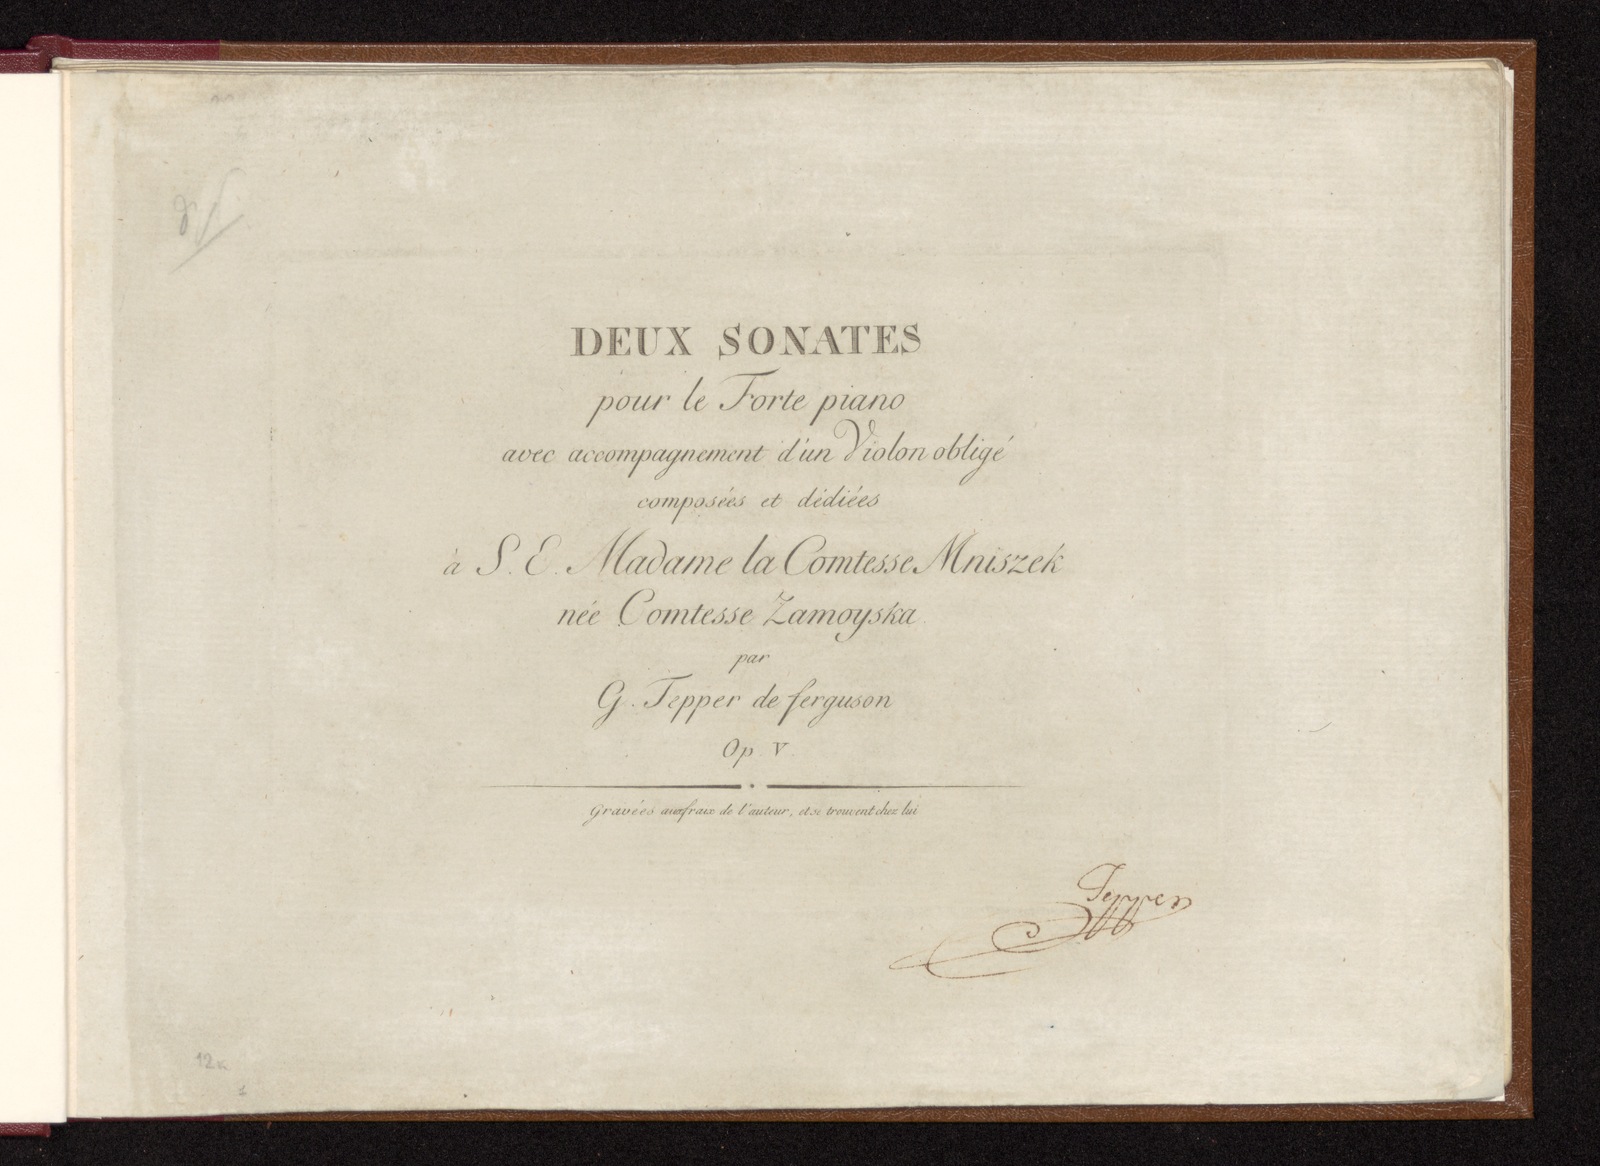 DEUX SONATES
pour le Forte piano
avec accompagnement d'un Violon obligé
composées et dédiées
à S. E. Madame la Comtesse Mniszek
née Comtesse Zamoyska.
par
G. Tepper de ferguson
Op. V.
Gravées aux fraix de l'auteur, et se trouvent chez lui
Tepper
12